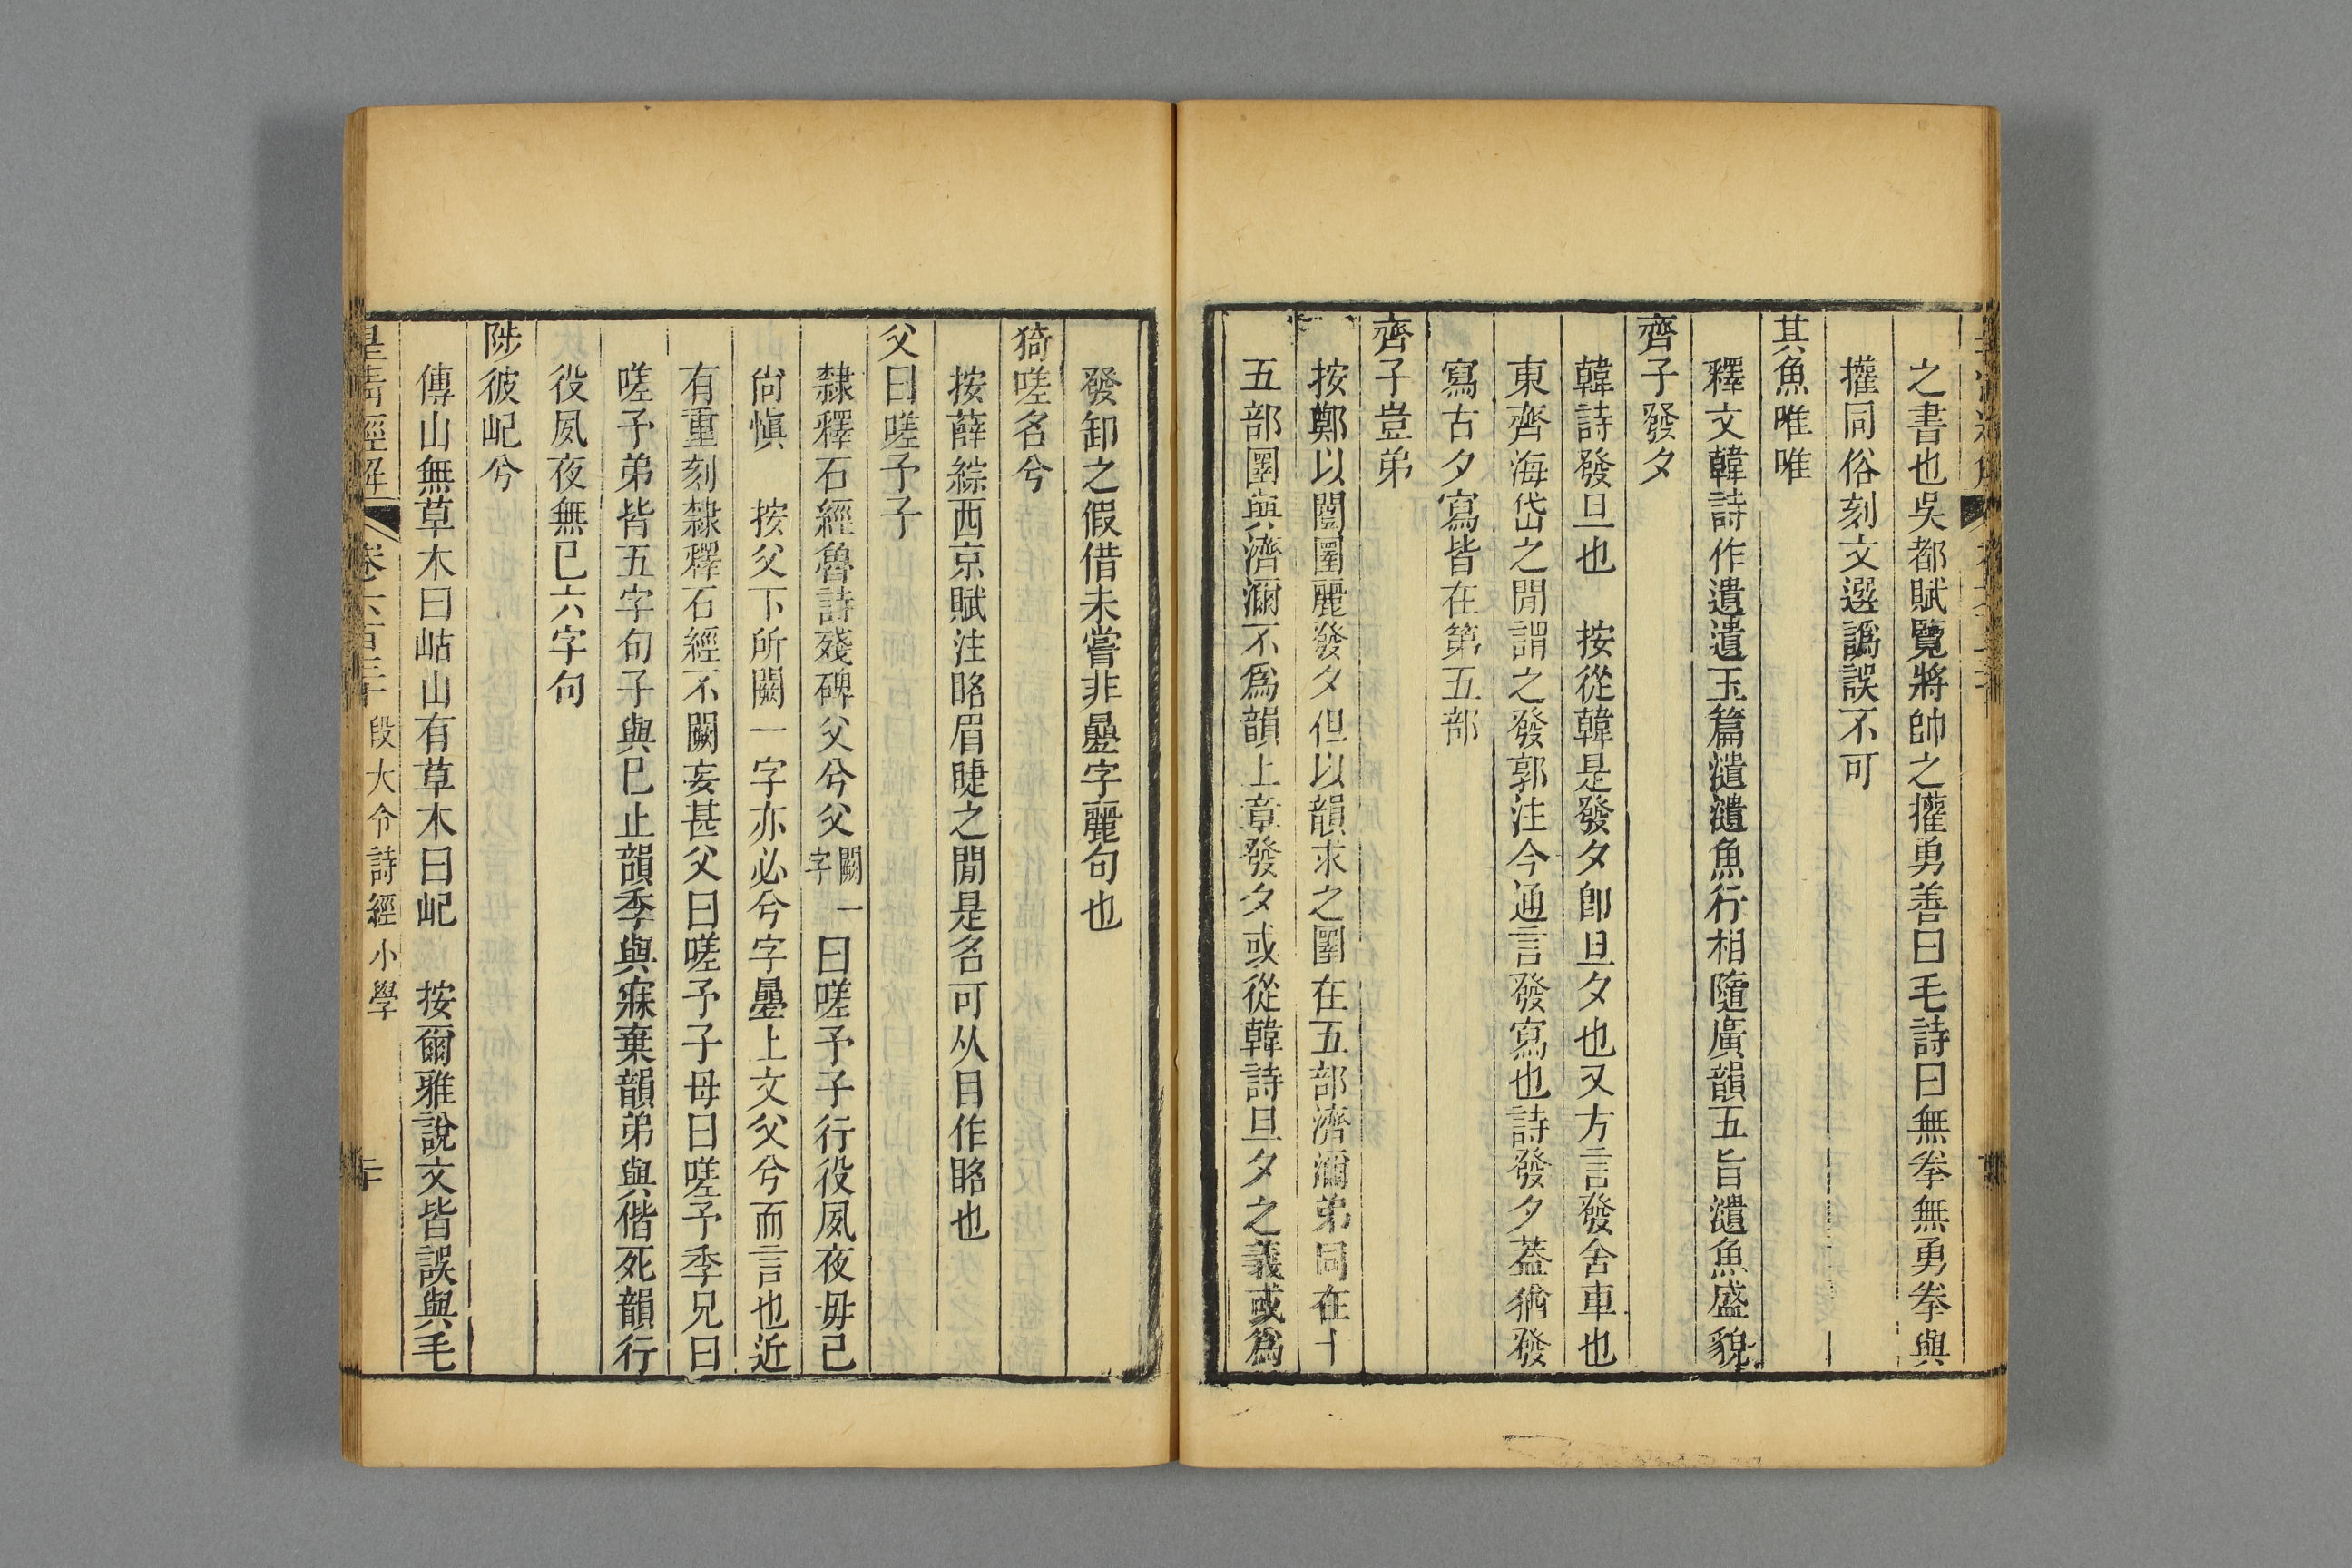 之書也吳都賦覽將帥之㩲勇善曰毛詩曰無拳無勇拳與
㩲同俗刻文選譌誤不可
其魚唯唯
釋文韓詩作遺遺玉篇瀢瀢魚行相隨廣韻五旨瀢魚盛貌
齊子發夕
韓詩發旦也　按從韓是發夕卽旦夕也又方言發舍車也
東齊海岱之閒謂之發郭注今通言發寫也詩發夕蓋猶發
寫古夕寫皆在第五部
齊子豈弟
按鄭以闓圛麗發夕但以韻求之圛在五部濟瀰弟同在十
五部圛與濟瀰不爲韻上章發夕或從韓詩旦夕之義或爲
發卸之假借未嘗非㬪字麗句也
猗嗟名兮
按薛綜西京賦注䀩眉睫之閒是名可从目作䀩也
父曰嗟予子
隸釋石經魯詩殘碑父兮父闕一字曰嗟予子行役夙夜毋已
尙愼　按父下所闕一字亦必兮字㬪上文父兮而言也近
有重刻隸釋石經不闕妄甚父曰嗟予子母曰嗟予季兄曰
嗟予弟皆五字句子與已止韻季與寐棄韻弟與偕死韻行
役夙夜無已六字句
陟彼屺兮
傳山無草木曰岵山有草木曰屺　按爾雅說文皆誤與毛
皇清經解　卷六百三十　段大令詩經小學　二十